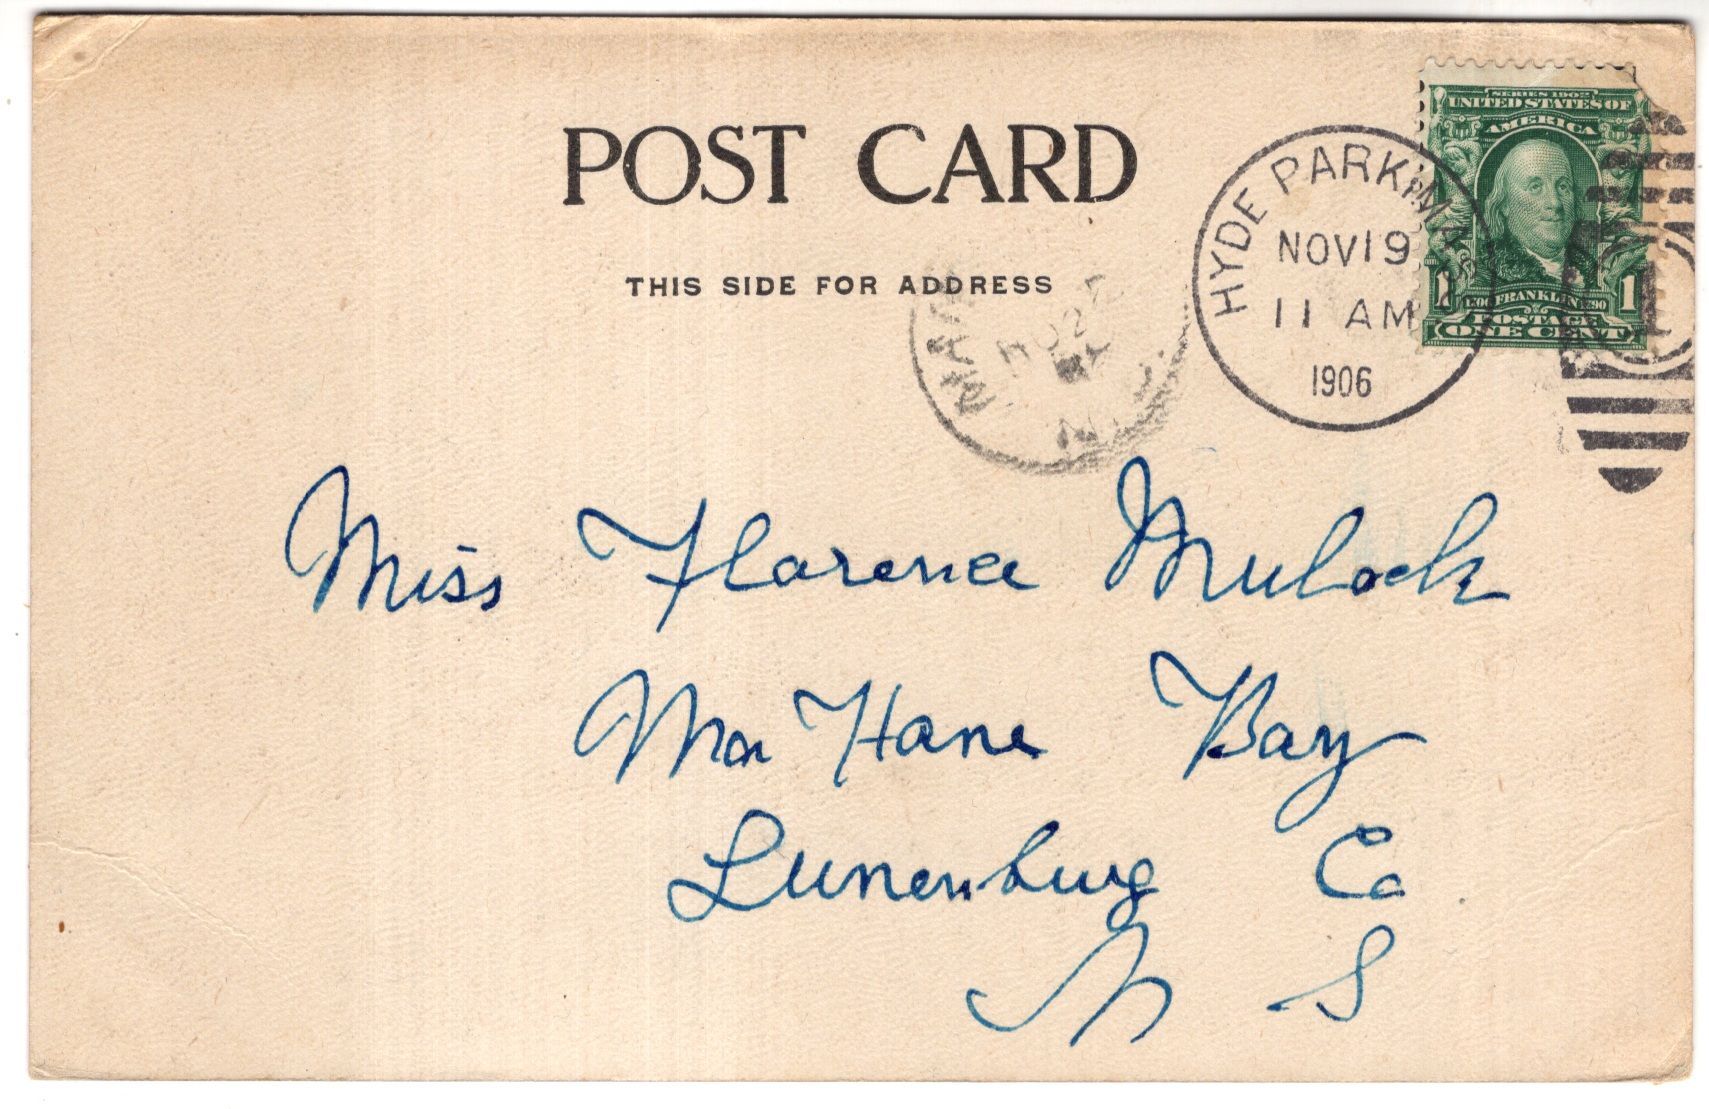 POST CARD
THIS SIDE FOR ADDRESS
SERIES 1902
UNITED STATES OF
AMERICA
1 FRANKLIN 1
POSTAGE
ONE CENT
HYDE PARK, MASS
NOV 19
11 AM
1906
MA
N
Miss Florence Mulock
Mahone Bay
Lunenburg Co
N S